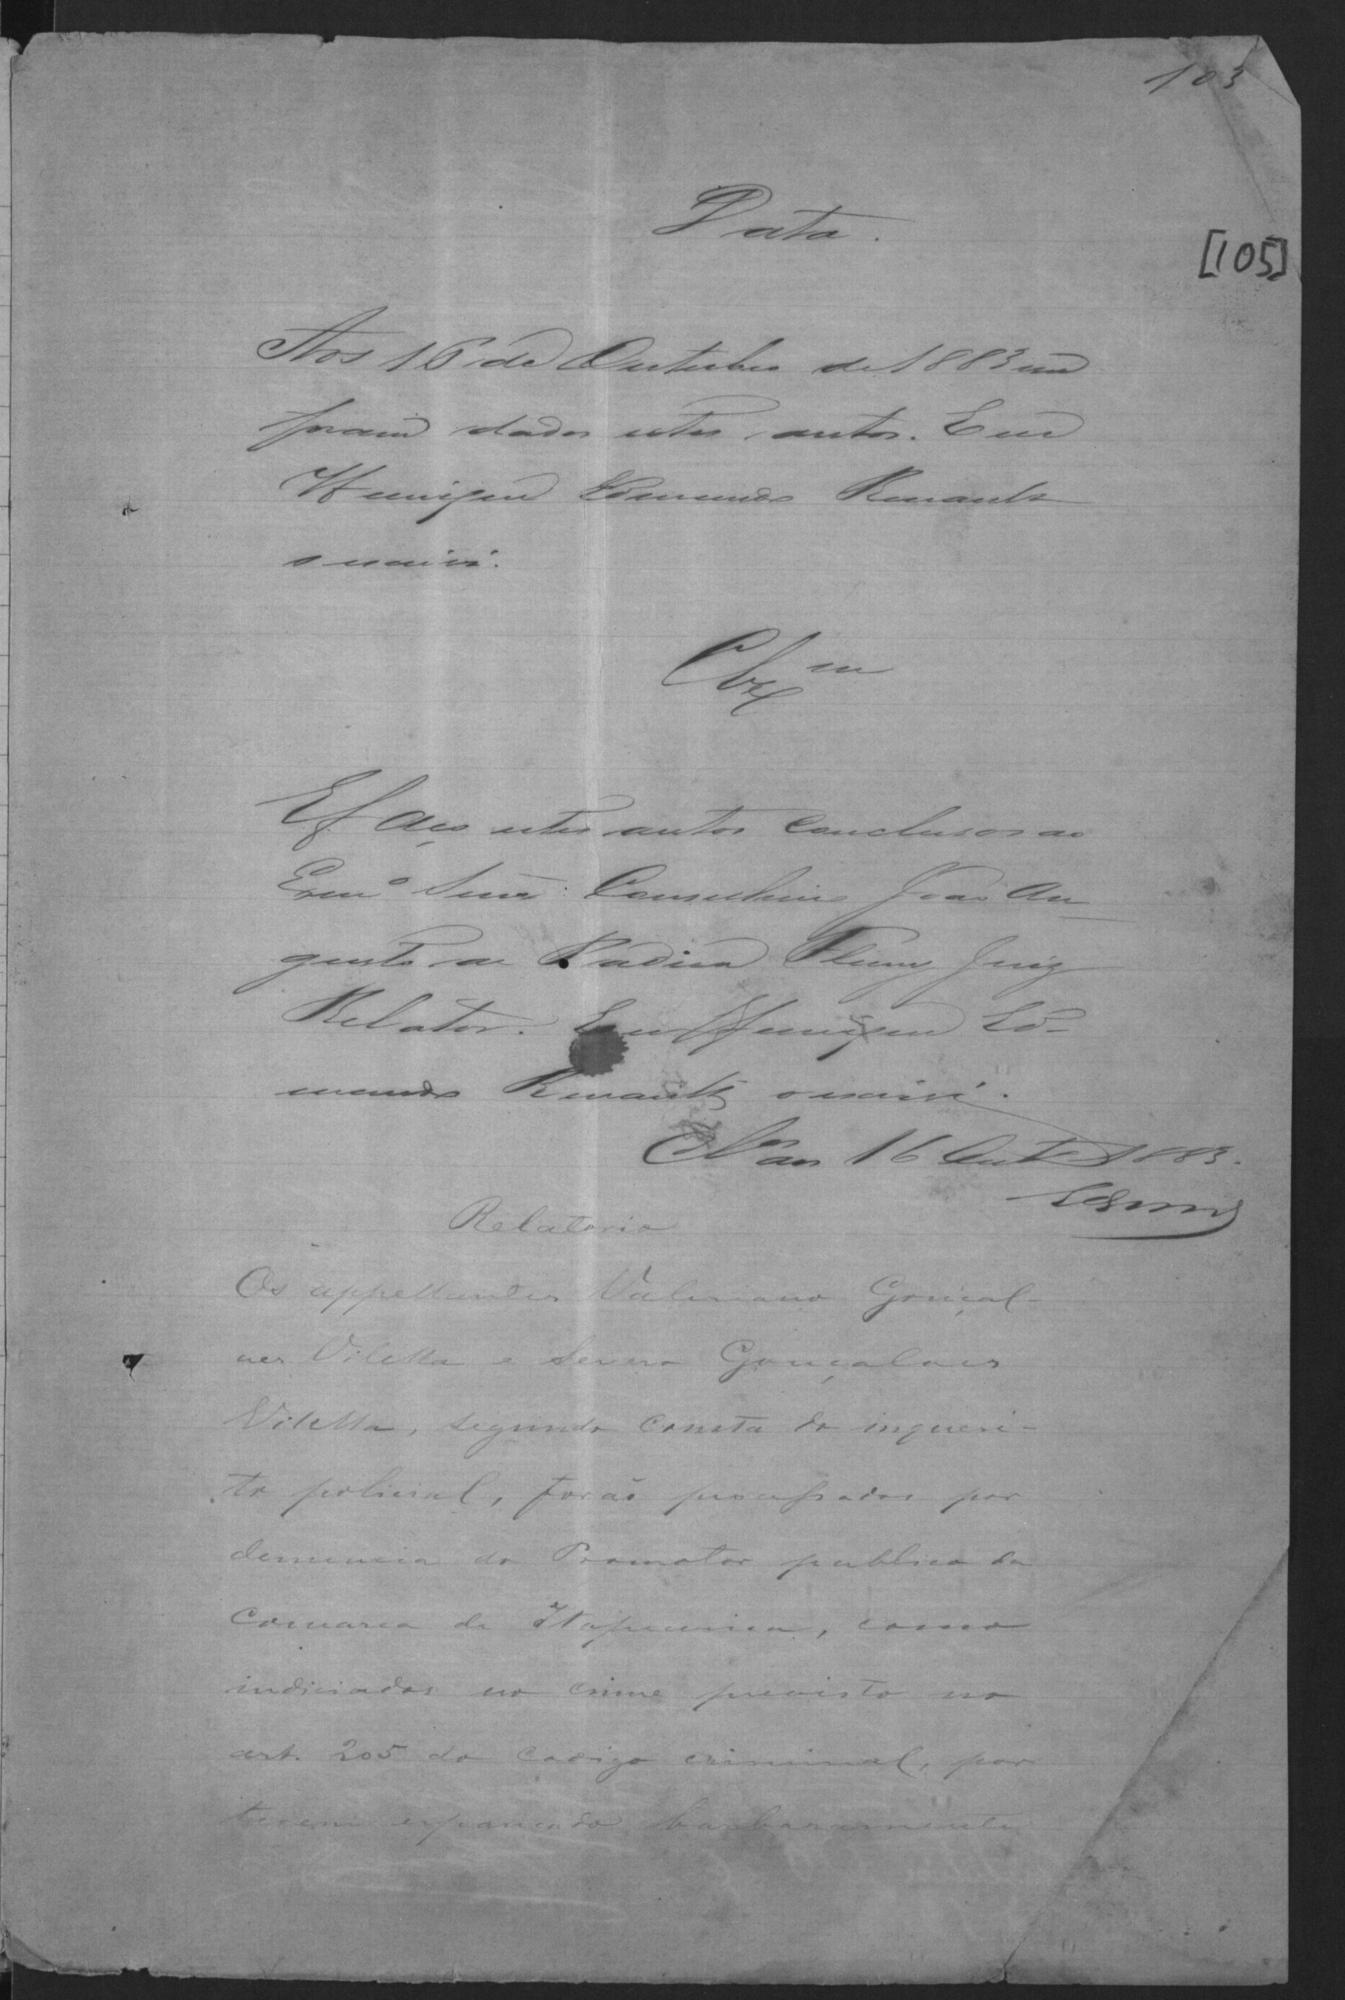 103
[105]
Data.
Aos 16 de Outubro de 1883 me
foram dados estes autos. Eu
Henrique Lomundo Renault
o escrivi.
Clsm
E faço estes autos conclusos ao
Exmo Senr. Conselheiro João Au-
gusto de Padua Fleury Juiz
Relator. Eu Henrique Lo-
mundo Renault o escrivi.
Clsos 16 Out 1883.
Relatorio
Os appellantes Valeriano Gonçal-
ves Vilella e Severo Gonçalves
Vilella, segundo consta do inqueri-
to policial, forão processados por
denuncia do Promotor publico da
Comarca de Itapecerica, como
indiciados no crime previsto no
art. 205 do codigo criminal, por
terem espancado barbaramente